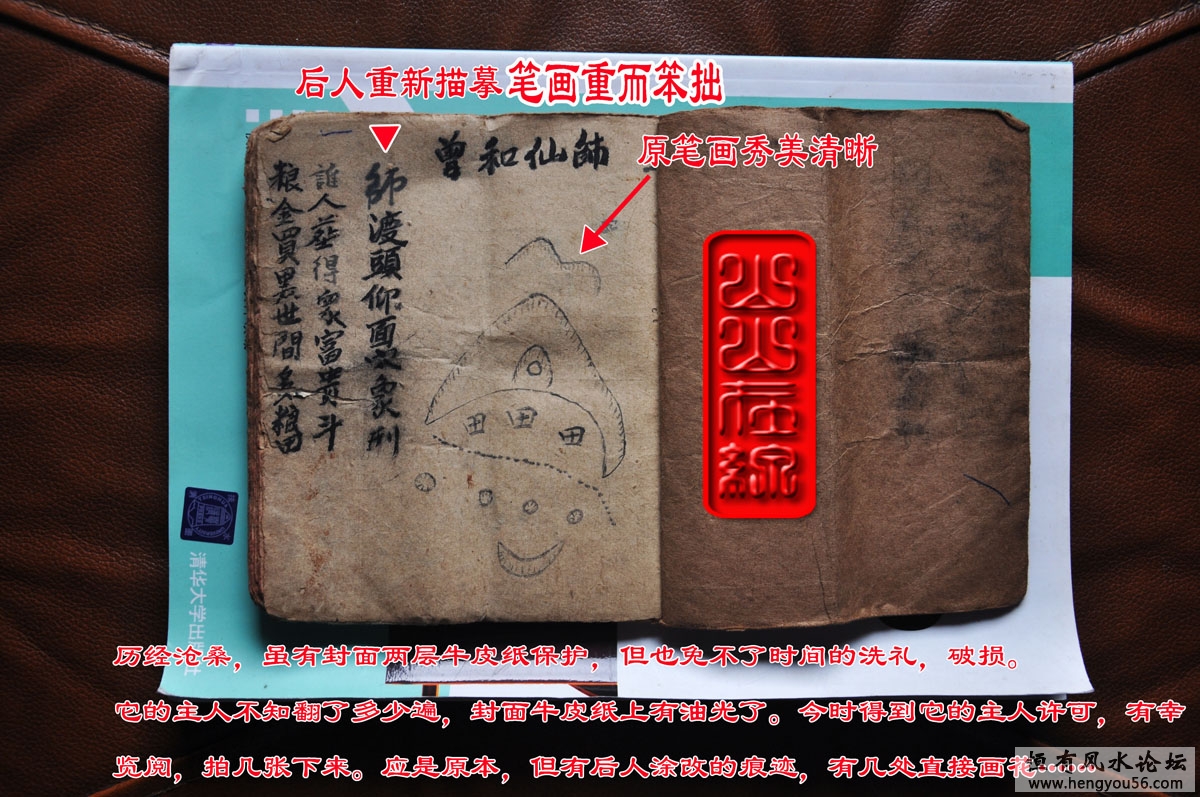 后人重新描摹 笔画重而笨拙
原笔画秀美清晰
曾和仙師
師渡頭仰面穴裏刑
誰人葬得家富貴斗
粮金買
世間
田 田 田
清华大学出版社
历经沧桑，虽有封面两层牛皮纸保护，但也免不了时间的洗礼，破损。
它的主人不知翻了多少遍，封面牛皮纸上有油光了。今时得到它的主人许可，有幸
览阅，拍几张下来。应是原本，但有后人涂改的痕迹，有几处直接画花。。。。。。
恒有风水论坛
www.hengyou56.com